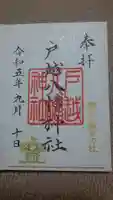 奉拝
戸越八幡神社
戸越
神社
令和五年九月十日